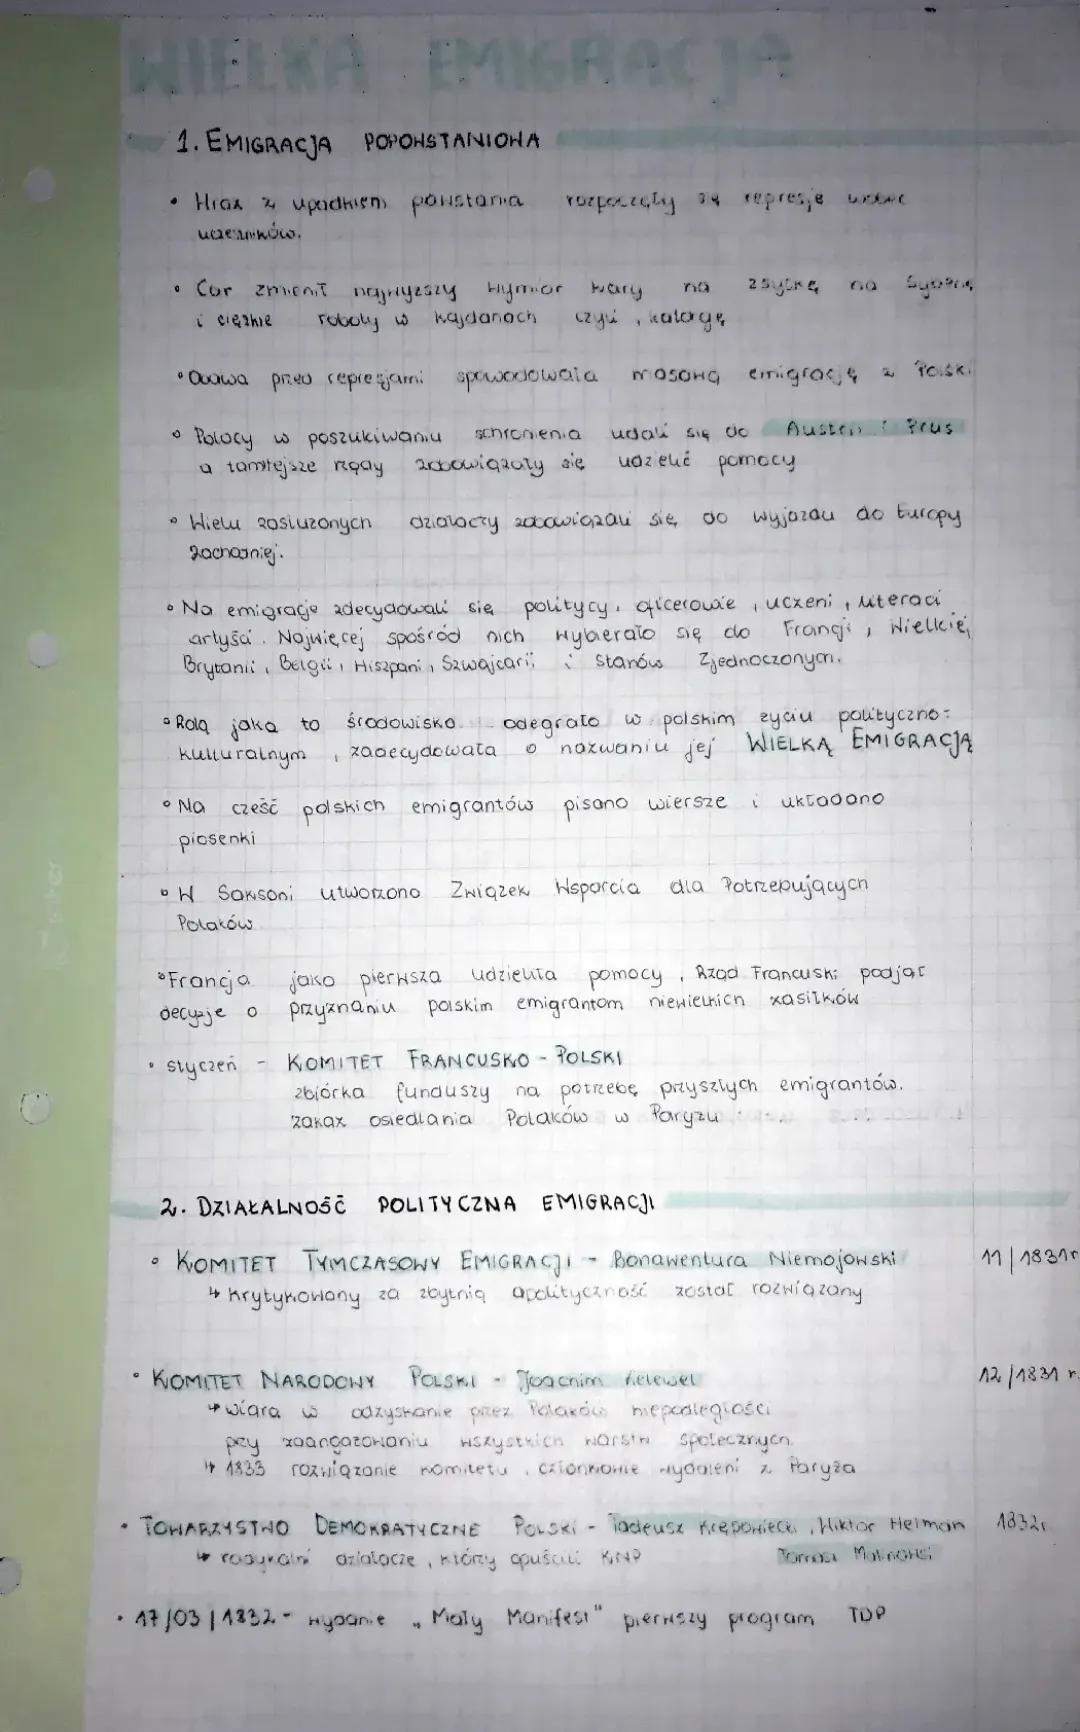 WIELKA EMIGRACJA
1. EMIGRACJA POPOWSTANIOWA
• Wraz z upadkiem powstania rozpoczęły się represje wobec
uczestników.
• Car zmienił najwyższy wymiar kary na zsyłkę na Syberię
i ciężkie roboty w kajdanach czyli, katorgę
• Obawa przed represjami spowodowała masową emigrację z Polski
• Polacy w poszukiwaniu schronienia udali się do Austrii i Prus
a tamtejsze rządy zobowiązały się udzielić pomocy
• Wielu zasłużonych działaczy zobowiązali się do wyjazdu do Europy
Zachodniej.
• Na emigracje zdecydowali się politycy, oficerowie, uczeni, literaci
artyści. Najwięcej spośród nich wybierało się do Francji, Wielkiej
Brytanii, Belgii, Hiszpani, Szwajcarii i Stanów Zjednoczonych.
• Rolą jaką to środowisko odegrało w polskim życiu polityczno-
kulturalnym, zadecydowała o nazwaniu jej WIELKĄ EMIGRACJĄ
• Na cześć polskich emigrantów pisano wiersze i układano
piosenki
• W Saksoni utworzono Związek Wsparcia dla Potrzebujących
Polaków
• Francja jako pierwsza udzieliła pomocy. Rząd Francuski podjął
decyzje o przyznaniu polskim emigrantom niewielkich zasiłków
• styczeń - KOMITET FRANCUSKO - POLSKI
zbiórka funduszy na potrzebę przyszłych emigrantów.
zakaz osiedlania Polaków w Paryżu
2. DZIAŁALNOŚĆ POLITYCZNA EMIGRACJI
• KOMITET TYMCZASOWY EMIGRACJI - Bonawentura Niemojowski 11/1831r
↳ krytykowany za zbytnią apolityczność został rozwiązany
• KOMITET NARODOWY POLSKI - Joachim Lelewel 12/1831 r.
↳ wiara w odzyskanie przez Polaków niepodległości
przy zaangażowaniu wszystkich warstw społecznych.
↳ 1833 rozwiązanie komitetu, członkowie wydaleni z Paryża
• TOWARZYSTWO DEMOKRATYCZNE POLSKI - Tadeusz Krępowiecki, Wiktor Helman 1832r
↳ radykalni działacze, którzy opuścili KNP Tomasz Malinowski
• 17/03/1832 - wydanie „Mały Manifest" pierwszy program TDP